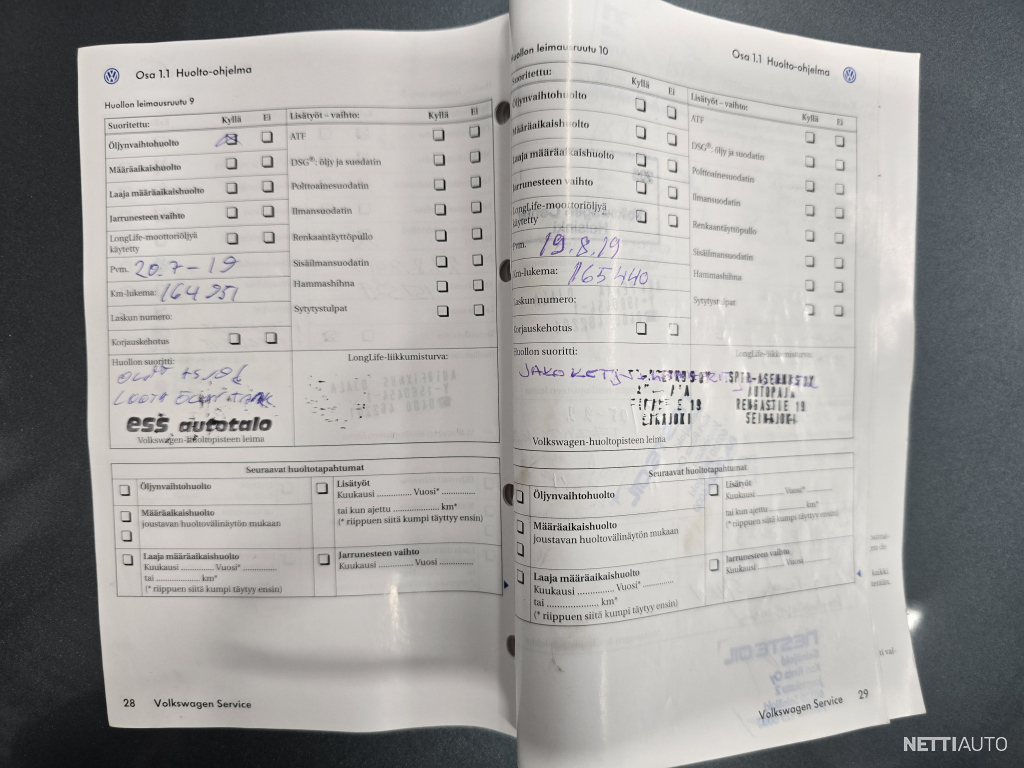 Osa 1.1 Huolto-ohjelma
Huollon leimausruutu 9
Suoritettu: Kyllä Ei
Öljynvaihtohuolto
Määräaikaishuolto
Laaja määräaikaishuolto
Jarrunesteen vaihto
LongLife-moottoriöljyä
käytetty
Pvm. 20.7-19
Km-lukema: 164951
Laskun numero:
Korjauskehotus
Lisätyöt – vaihto: Kyllä Ei
ATF
DSG®: öljy ja suodatin
Polttoainesuodatin
Ilmansuodatin
Renkaantäyttöpullo
Sisäilmansuodatin
Hammashihna
Sytytystulpat
Huollon suoritti:
ess autotalo
Volkswagen-huoltopisteen leima
LongLife-liikkumisturva:
Seuraavat huoltotapahtumat
Öljynvaihtohuolto
Määräaikaishuolto
joustavan huoltovälinäytön mukaan
Laaja määräaikaishuolto
Kuukausi .............. Vuosi* ..............
tai .................. km*
(* riippuen siitä kumpi täytyy ensin)
Lisätyöt
Kuukausi .............. Vuosi* ..............
tai kun ajettu ..................... km*
(* riippuen siitä kumpi täytyy ensin)
Jarrunesteen vaihto
Kuukausi .............. Vuosi ..............
28 Volkswagen Service
Huollon leimausruutu 10
Osa 1.1 Huolto-ohjelma
Suoritettu: Kyllä Ei
Öljynvaihtohuolto
Määräaikaishuolto
Laaja määräaikaishuolto
Jarrunesteen vaihto
LongLife-moottoriöljyä
käytetty
Pvm. 19.8.19
Km-lukema: 165440
Laskun numero:
Korjauskehotus
Lisätyöt – vaihto: Kyllä Ei
ATF
DSG®: öljy ja suodatin
Polttoainesuodatin
Ilmansuodatin
Renkaantäyttöpullo
Sisäilmansuodatin
Hammashihna
Sytytystulpat
Huollon suoritti:
LongLife-liikkumisturva:
JAKOKETJU
AUTOPAJA
RENGASTIE 19
SEINÄJOKI
Volkswagen-huoltopisteen leima
Seuraavat huoltotapahtumat
Öljynvaihtohuolto
Määräaikaishuolto
joustavan huoltovälinäytön mukaan
Laaja määräaikaishuolto
Kuukausi .............. Vuosi* ..............
tai .................... km*
(* riippuen siitä kumpi täytyy ensin)
Lisätyöt
Kuukausi .............. Vuosi* ..............
tai kun ajettu ..................... km*
(* riippuen siitä kumpi täytyy ensin)
Jarrunesteen vaihto
Kuukausi .............. Vuosi
Volkswagen Service 29
NETTIAUTO